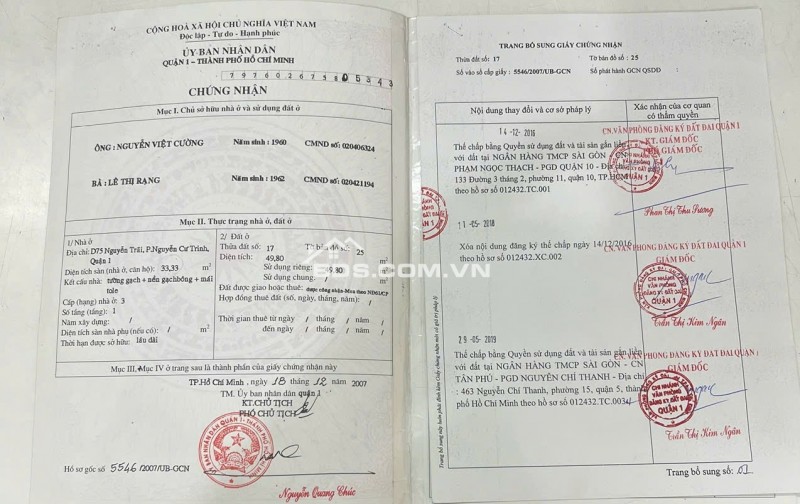 CỘNG HOÀ XÃ HỘI CHỦ NGHĨA VIỆT NAM
Độc lập - Tự do - Hạnh phúc
ỦY BAN NHÂN DÂN
QUẬN 1 – THÀNH PHỐ HỒ CHÍ MINH
797602675805343
CHỨNG NHẬN
Mục I. Chủ sở hữu nhà ở và sử dụng đất ở
ÔNG : NGUYỄN VIỆT CƯỜNG Năm sinh : 1960 CMND số : 020406324
BÀ : LÊ THỊ RẠNG Năm sinh : 1962 CMND số : 020421194
Mục II. Thực trạng nhà ở, đất ở
1/ Nhà ở
Địa chỉ: D75 Nguyễn Trãi, P.Nguyễn Cư Trinh,
Quận 1
Diện tích sàn (nhà ở, căn hộ): 33,33 m²
Kết cấu nhà: tường gạch + nền gạch bông + mái
tole
Cấp (hạng) nhà ở: 3
Số tầng (tầng): 1
Năm xây dựng: /
Diện tích sàn nhà phụ (nếu có): / m²
Thời hạn được sở hữu: lâu dài
2/ Đất ở
Thửa đất số: 17 Tờ bản đồ số: 25
Diện tích: 49,80 m²
Sử dụng riêng: 49,80 m²
Sử dụng chung: / m²
Đất được giao hoặc thuê: được công nhận-Mua theo NĐ61/CP
Hợp đồng thuê đất (số, ngày, tháng, năm): /
Thời gian thuê từ ngày / tháng / năm
đến ngày / tháng / năm
Mục III, Mục IV ở trang sau là thành phần của giấy chứng nhận này
TP.Hồ Chí Minh, ngày 18 tháng 12 năm 2007
TM. Ủy ban nhân dân quận 1
KT.CHỦ TỊCH
PHÓ CHỦ TỊCH
Hồ sơ gốc số 5546/2007/UB-GCN
Nguyễn Quang Chúc
TRANG BỔ SUNG GIẤY CHỨNG NHẬN
Thửa đất số: 17 Tờ bản đồ số: 25
Số vào sổ cấp giấy : 5546/2007/UB-GCN Số phát hành GCN QSDĐ :
Nội dung thay đổi và cơ sở pháp lý
Xác nhận của cơ quan
có thẩm quyền
14-12-2016
CN.VĂN PHÒNG ĐĂNG KÝ ĐẤT ĐAI QUẬN 1
KT. GIÁM ĐỐC
PHÓ GIÁM ĐỐC
Thế chấp bằng Quyền sử dụng đất và tài sản gắn liền
với đất tại NGÂN HÀNG TMCP SÀI GÒN - CN
PHẠM NGỌC THẠCH - PGD QUẬN 10 - Địa chỉ
133 Đường 3 tháng 2, phường 11, quận 10, TP.HCM
theo hồ sơ 012432.TC.001
Phan Thị Thu Sương
11-05-2018
Xóa nội dung đăng ký thế chấp ngày 14/12/2016
theo hồ sơ 012432.XC.002
CN.VĂN PHÒNG ĐĂNG KÝ ĐẤT ĐAI QUẬN 1
GIÁM ĐỐC
CHI NHÁNH
VĂN PHÒNG
ĐĂNG KÝ ĐẤT ĐAI
QUẬN 1
Trần Thị Kim Ngân
29-05-2019
Thế chấp bằng Quyền sử dụng đất và tài sản gắn liền
với đất tại NGÂN HÀNG TMCP SÀI GÒN - CN
TÂN PHÚ - PGD NGUYỄN CHÍ THANH - Địa chỉ
: 463 Nguyễn Chí Thanh, phường 15, quận 5, thành
phố Hồ Chí Minh theo hồ sơ 012432.TC.003
CN.VĂN PHÒNG ĐĂNG KÝ ĐẤT ĐAI QUẬN 1
GIÁM ĐỐC
CHI NHÁNH
VĂN PHÒNG
ĐĂNG KÝ ĐẤT ĐAI
QUẬN 1
Trần Thị Kim Ngân
Trang bổ sung này luôn phải đính kèm Giấy chứng nhận mới có giá trị pháp lý
Trang bổ sung số: 01
SBS.COM.VN